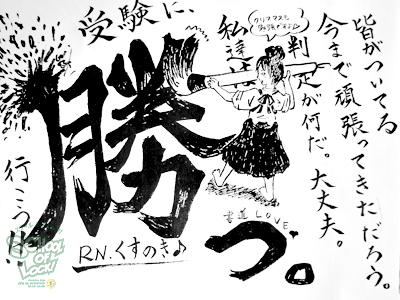 皆がついてる
今まで頑張ってきただろう。
判定が何だ。大丈夫。
クリスマスも
勉強ですよ
私達は
受験に、
勝つ。
行こう!!
書道 LOVE
RN.くすのき♪
SCHOOL
OF
LOCK!